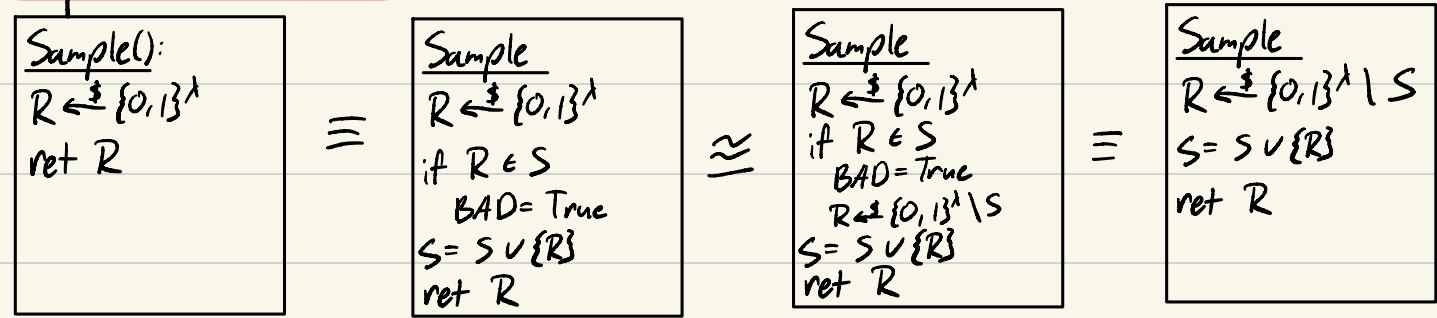 Sample():
R ←$ {0,1}^λ
ret R
≡
Sample
R ←$ {0,1}^λ
if R ∈ S
BAD = True
S = S ∪ {R}
ret R
≈
Sample
R ←$ {0,1}^λ
if R ∈ S
BAD = True
R ←$ {0,1}^λ \ S
S = S ∪ {R}
ret R
≡
Sample
R ←$ {0,1}^λ \ S
S = S ∪ {R}
ret R